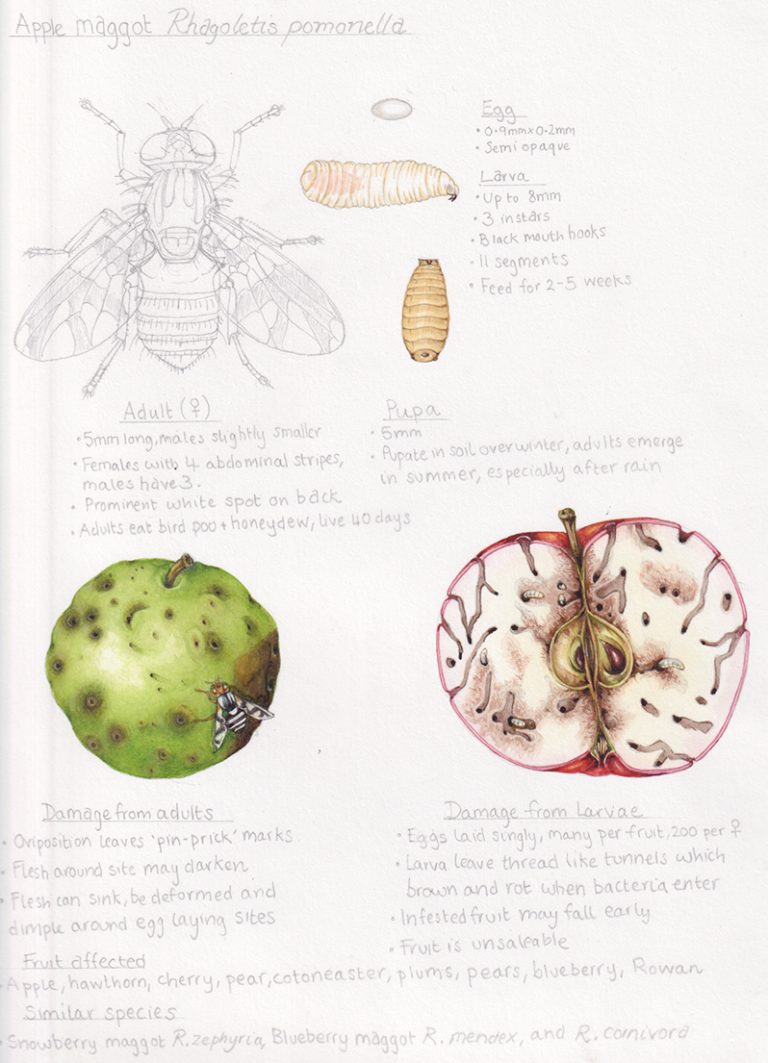 Apple maggot Rhagoletis pomonella
Egg
• 0.9mm x 0.2mm
• Semi opaque
Larva
• Up to 8mm
• 3 instars
• Black mouth hooks
• 11 segments
• Feed for 2-5 weeks
Adult (♀)
• 5mm long, males slightly smaller
• Females with 4 abdominal stripes,
males have 3.
• Prominent white spot on back
• Adults eat bird poo + honeydew, live 40 days
Pupa
• 5mm
• Pupate in soil over winter, adults emerge
in summer, especially after rain
Damage from adults
• Oviposition leaves 'pin-prick' marks
• Flesh around site may darken
• Flesh can sink, be deformed and
dimple around egg laying sites
Damage from Larvae
• Eggs laid singly, many per fruit, 200 per ♀
• Larva leave thread like tunnels which
brown and rot when bacteria enter
• Infested fruit may fall early
• Fruit is unsaleable
Fruit affected
• Apple, hawthorn, cherry, pear, cotoneaster, plums, pears, blueberry, Rowan
Similar species
• Snowberry maggot R. zephyria, Blueberry maggot R. mendex, and R. cornivora